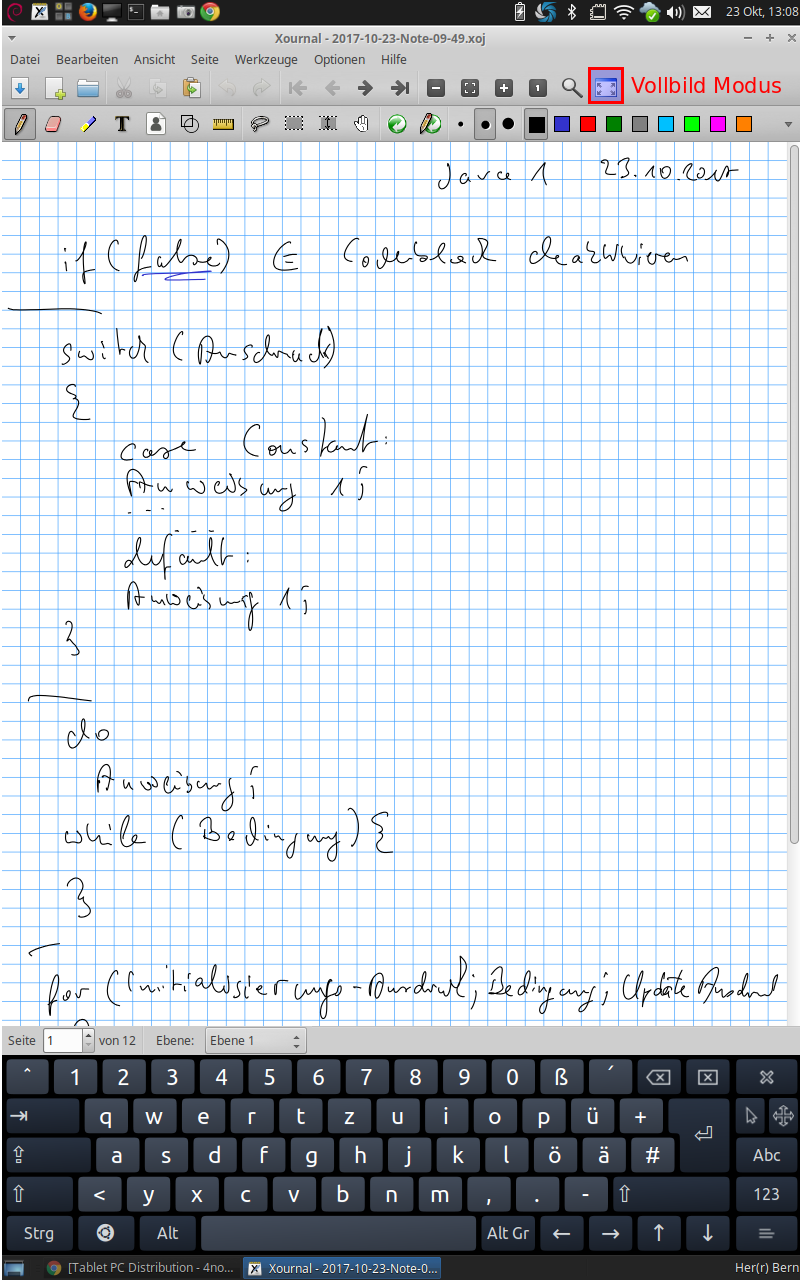 23 Okt, 13:08
Xournal - 2017-10-23-Note-09-49.xoj
Datei Bearbeiten Ansicht Seite Werkzeuge Optionen Hilfe
1 Vollbild Modus
T
Java 1 23.10.2017
if (false) ∈ Codeblock
switch (Ausdruck)
{
case Constant:
Anweisung 1;
...
...
default:
Anweisung 1;
}
do
Anweisung;
while (Bedingung) {
}
for (Initialisierungs-Ausdruck; Bedingung; Update Ausdruck
Seite 1 von 12 Ebene: Ebene 1
^ 1 2 3 4 5 6 7 8 9 0 ß ´
q w e r t z u i o p ü +
a s d f g h j k l ö ä # Abc
< y x c v b n m , . - 123
Strg Alt Alt Gr
[Tablet PC Distribution - 4no... Xournal - 2017-10-23-Note-0... Her(r) Bern